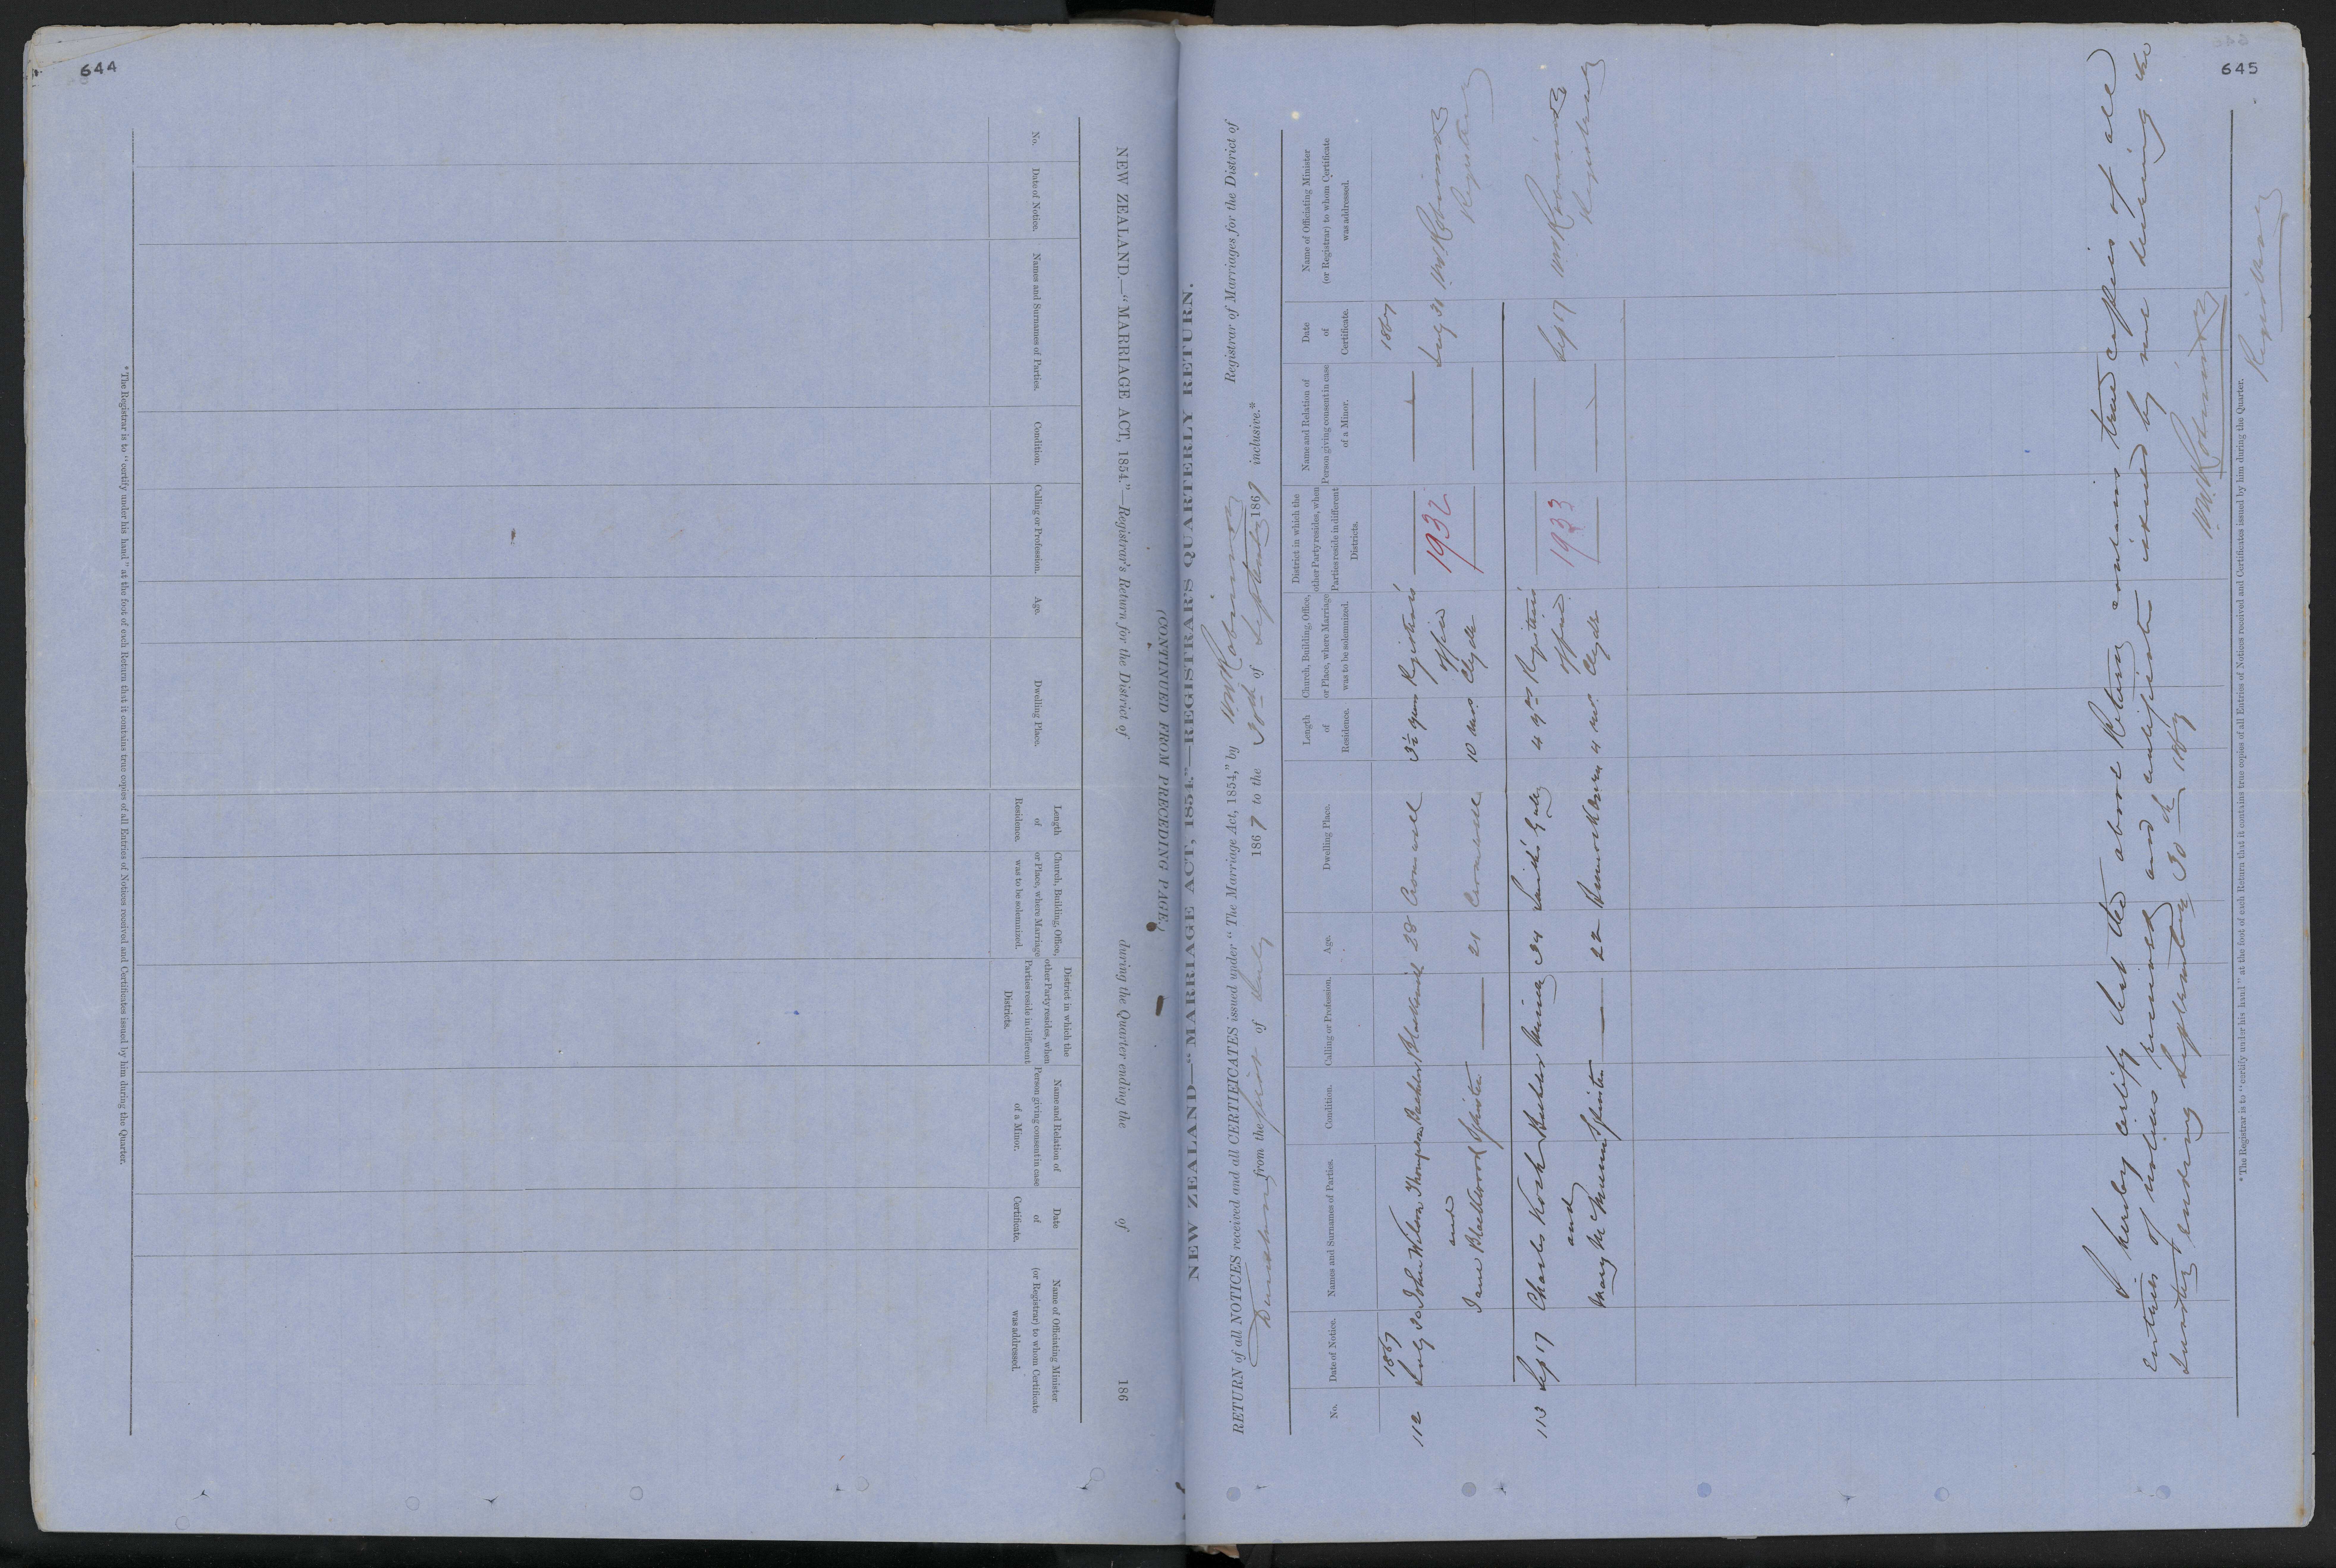 644
NEW ZEALAND.—"MARRIAGE ACT, 1854."—Registrar's Return for the District of during the Quarter ending the of 186
(CONTINUED FROM PRECEDING PAGE.)
No.
Date of Notice.
Names and Surnames of Parties.
Condition.
Calling or Profession.
Age.
Dwelling Place.
Length
of
Residence.
Church, Building, Office,
or Place, where Marriage
was to be solemnized.
District in which the
other Party resides, when
Parties reside in different
Districts.
Name and Relation of
Person giving consent in case
of a Minor.
Date
of
Certificate.
Name of Officiating Minister
(or Registrar) to whom Certificate
was addressed.
*The Registrar is to "certify under his hand" at the foot of each Return that it contains true copies of all Entries of Notices received and Certificates issued by him during the Quarter.
645
NEW ZEALAND—"MARRIAGE ACT, 1854."—REGISTRAR'S QUARTERLY RETURN.
RETURN of all NOTICES received and all CERTIFICATES issued under "The Marriage Act, 1854," by Registrar of Marriages for the District of
Dunstan from the first of July 1867 to the 30th of September 1867 inclusive.*
No.
Date of Notice.
Names and Surnames of Parties.
Condition.
Calling or Profession.
Age.
Dwelling Place.
Length
of
Residence.
Church, Building, Office,
or Place, where Marriage
was to be solemnized.
District in which the
other Party resides, when
Parties reside in different
Districts.
Name and Relation of
Person giving consent in case
of a Minor.
Date
of
Certificate.
Name of Officiating Minister
(or Registrar) to whom Certificate
was addressed.
1867 1867
112 July 30 John Wilson Thompson Bachelor Blacksmith 28 Cromwell 3½ years Registrar's July 31 Robinson
and office 1932 Registrar
Jane Blackwood Spinster — 21 Cromwell 10 mos. Clyde
113 Sep 17 Charles Koch Bachelor Miner 34 Smith's Gully 4 yrs Registrar's Sep 17 Robinson
and office 1933 Registrar
Mary Spinster — 22 4 mos. Clyde
I hereby certify that the above Return contains true copies of all
Entries of notices received and certificates issued by me during the
Quarter ending September 30th 1867
Robinson
Registrar
*The Registrar is to "certify under his hand" at the foot of each Return that it contains true copies of all Entries of Notices received and Certificates issued by him during the Quarter.